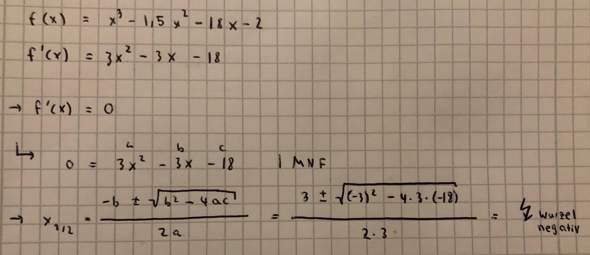 f(x) = x³ - 1,5x² - 18x - 2
f'(x) = 3x² - 3x - 18
→ f'(x) = 0
a b c
↳ 0 = 3x² - 3x - 18 | MNF
→ x₁/₂ = (-b ± √(b² - 4ac))/(2a) = (3 ± √((-3)² - 4·3·(-18)))/(2·3) = ↯ wurzel negativ